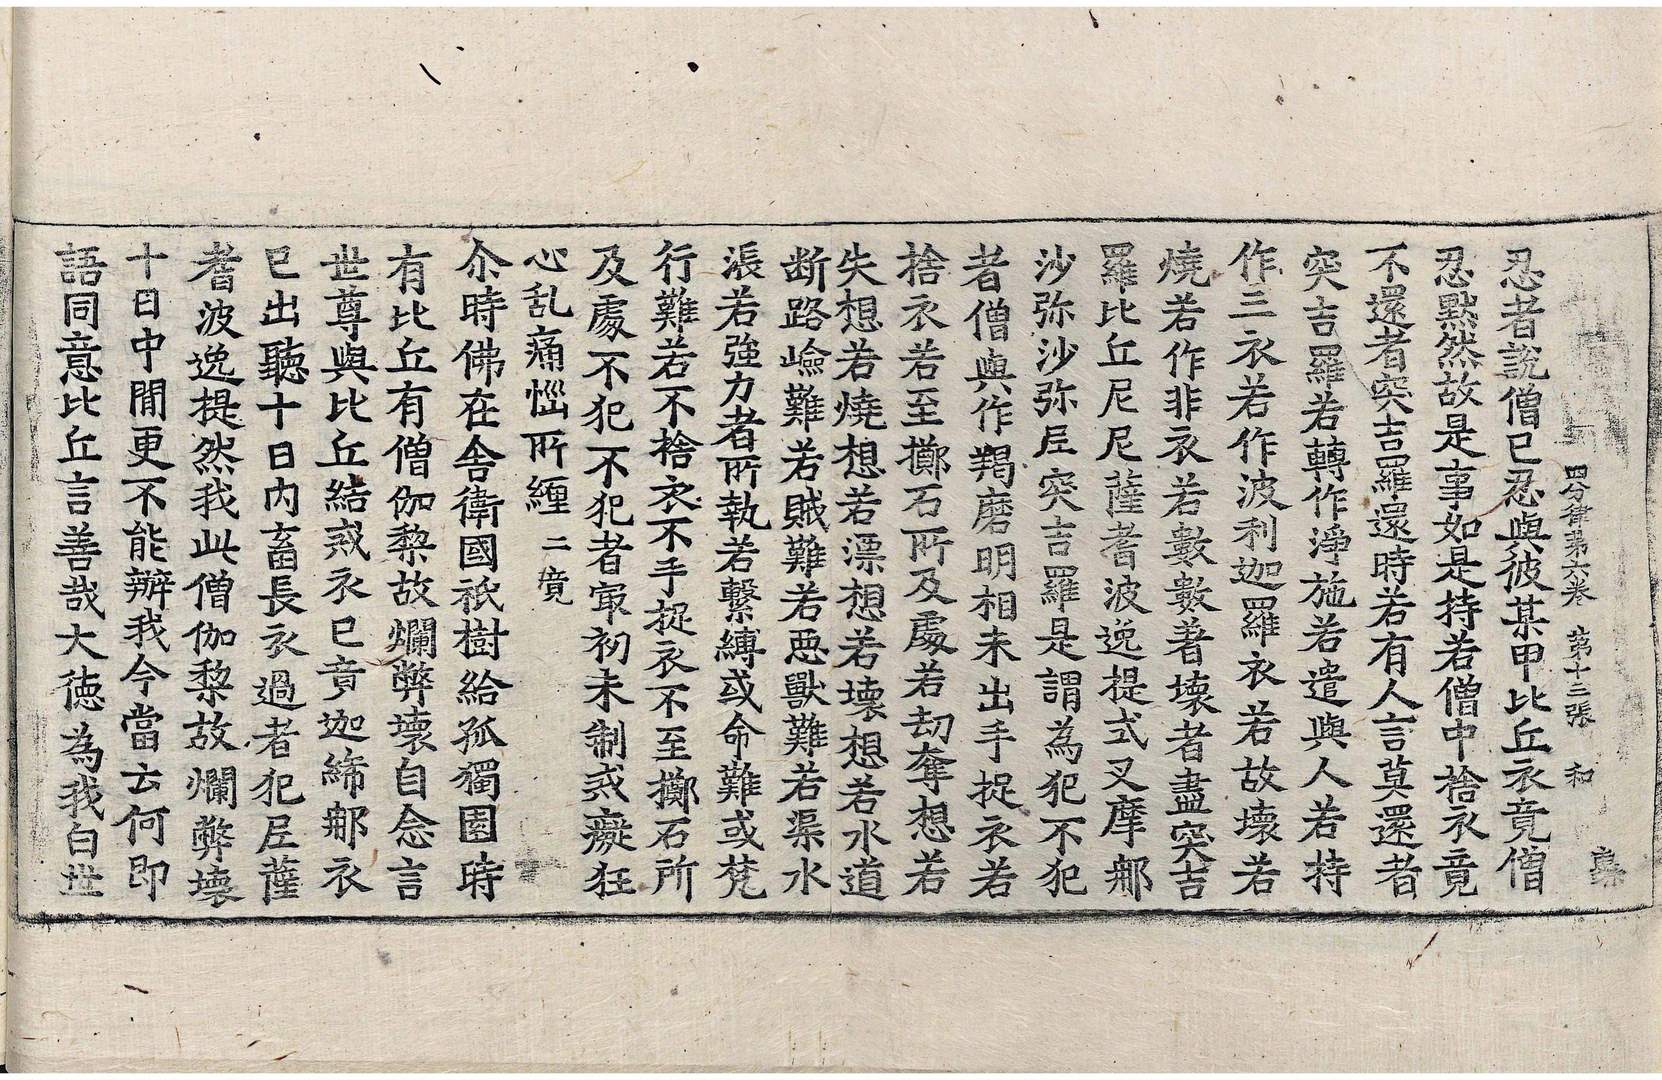 四分律第六卷 第十三張 和
忍者說僧已忍與彼某甲比丘衣竟僧
忍默然故是事如是持若僧中捨衣竟
不還者突吉羅還時若有人言莫還者
突吉羅若轉作淨施若遣與人若持
作三衣若作波利迦羅衣若故壞若
燒若作非衣若數數著壞者盡突吉
羅比丘尼尼薩耆波逸提式叉摩那
沙弥沙弥尼突吉羅是謂為犯不犯
者僧與作羯磨明相未出手捉衣若
捨衣若至擲石所及處若劫奪想若
失想若燒想若漂想若壞想若水道
断路嶮難若賊難若悪獸難若渠水
漲若強力者所執若繫縛或命難或梵
行難若不捨衣不手捉衣不至擲石所
及處不犯不犯者冣初未制戒癡狂
心乱痛惱所纏 二竟
尒時佛在舍衛國祇樹給孤獨園時
有比丘有僧伽梨故爛弊壞自念言
世尊與比丘結戒衣已竟迦絺那衣
已出聽十日內畜長衣過者犯尼薩
耆波逸提然我此僧伽梨故爛弊壞
十日中間更不能辦我今當云何即
語同意比丘言善哉大徳為我白世